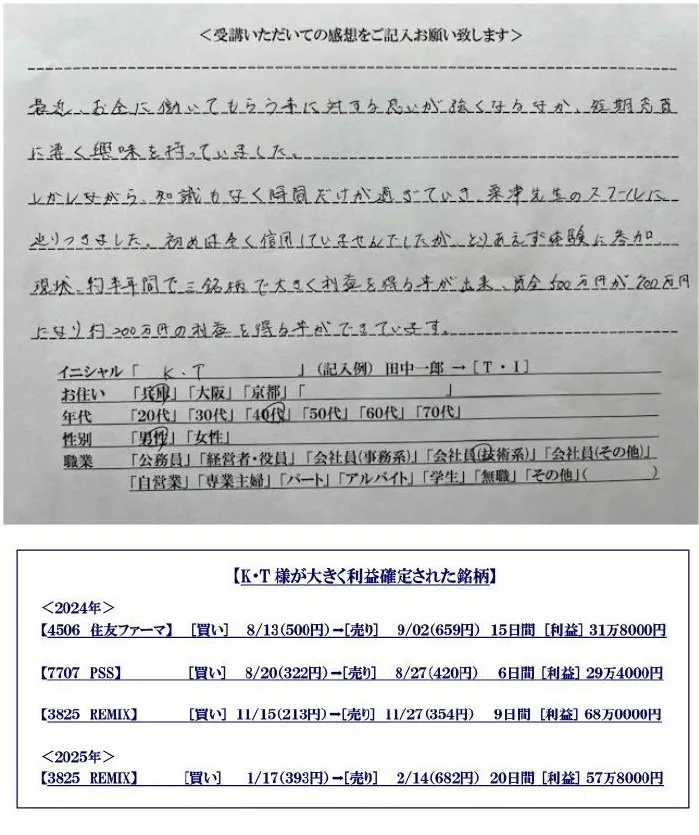 ＜受講いただいての感想をご記入お願い致します＞
最近、お金に働いてもらう事に対する思いが強くなるなか、短期売買
に凄く興味を持っていました。
しかしながら、知識もなく時間だけが過ぎていき、栗津先生のスクールに
辿りつきました。初めは全く信用していませんでしたが、とりあえず体験に参加
現状、約半年間で三銘柄で大きく利益を得る事が出来、資金500万円が700万円
になり約200万円の利益を得る事ができています。
イニシャル「 K.T 」（記入例）田中一郎 → [T・I]
お住い 「兵庫」「大阪」「京都」「 」
年代 「20代」「30代」「40代」「50代」「60代」「70代」
性別 「男性」「女性」
職業 「公務員」「経営者・役員」「会社員(事務系)」「会社員(技術系)」「会社員(その他)」
「自営業」「専業主婦」「パート」「アルバイト」「学生」「無職」「その他」( )
【K・T 様が大きく利益確定された銘柄】
＜2024年＞
【4506 住友ファーマ】 [買い] 8/13(500円)→[売り] 9/02(659円) 15日間 [利益] 31万8000円
【7707 PSS】 [買い] 8/20(322円)→[売り] 8/27(420円) 6日間 [利益] 29万4000円
【3825 REMIX】 [買い] 11/15(213円)→[売り] 11/27(354円) 9日間 [利益] 68万0000円
＜2025年＞
【3825 REMIX】 [買い] 1/17(393円)→[売り] 2/14(682円) 20日間 [利益] 57万8000円